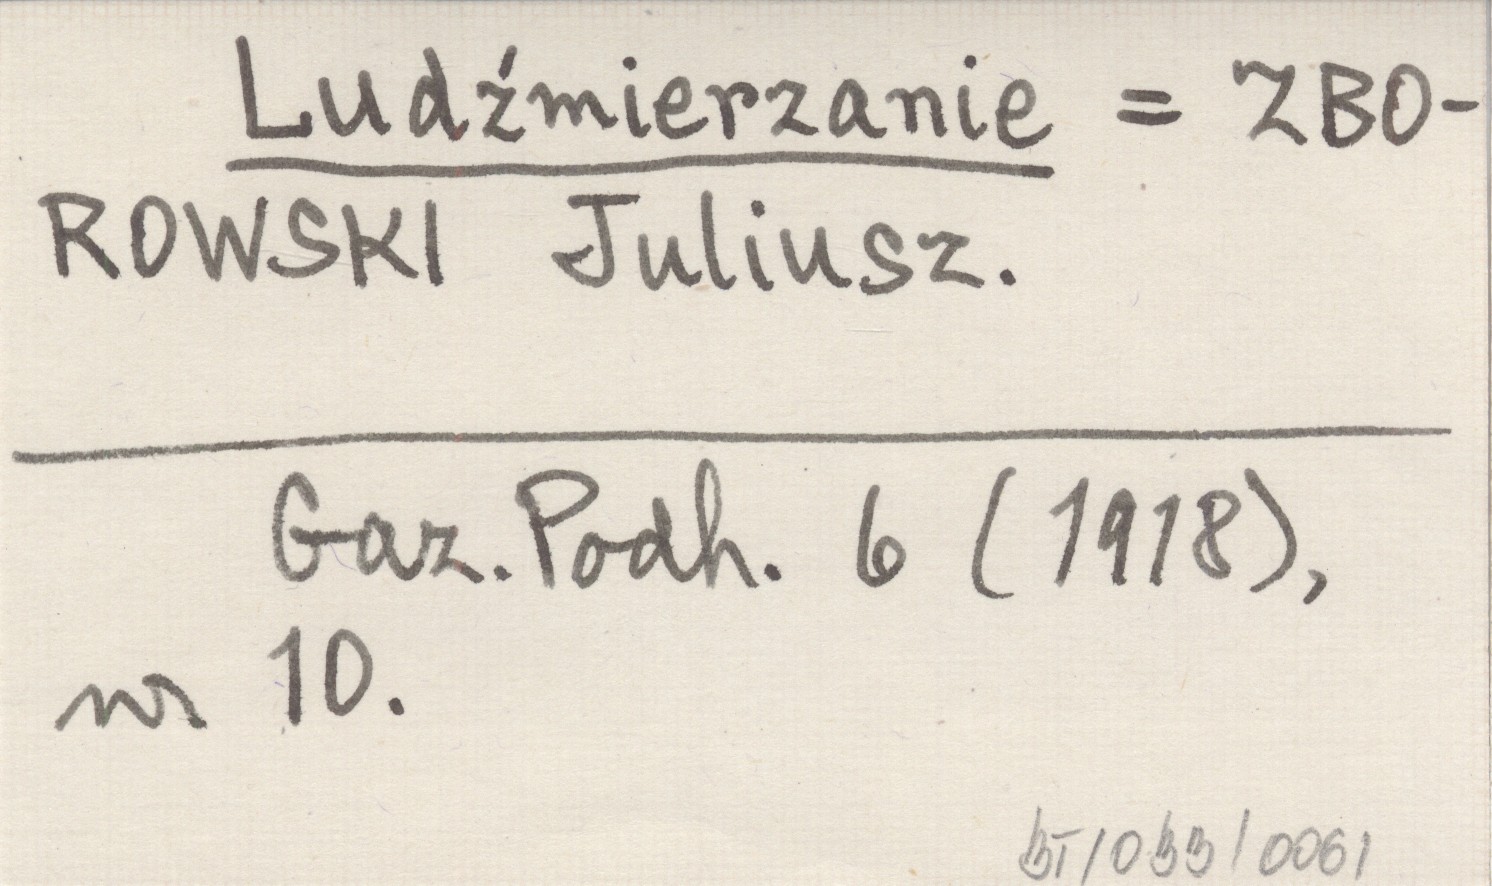 Ludźmierzanie = ZBO-
ROWSKI Juliusz.
Gaz. Podh. 6 (1918),
nr 10.
/0061